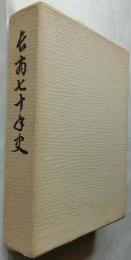 長商七十年史